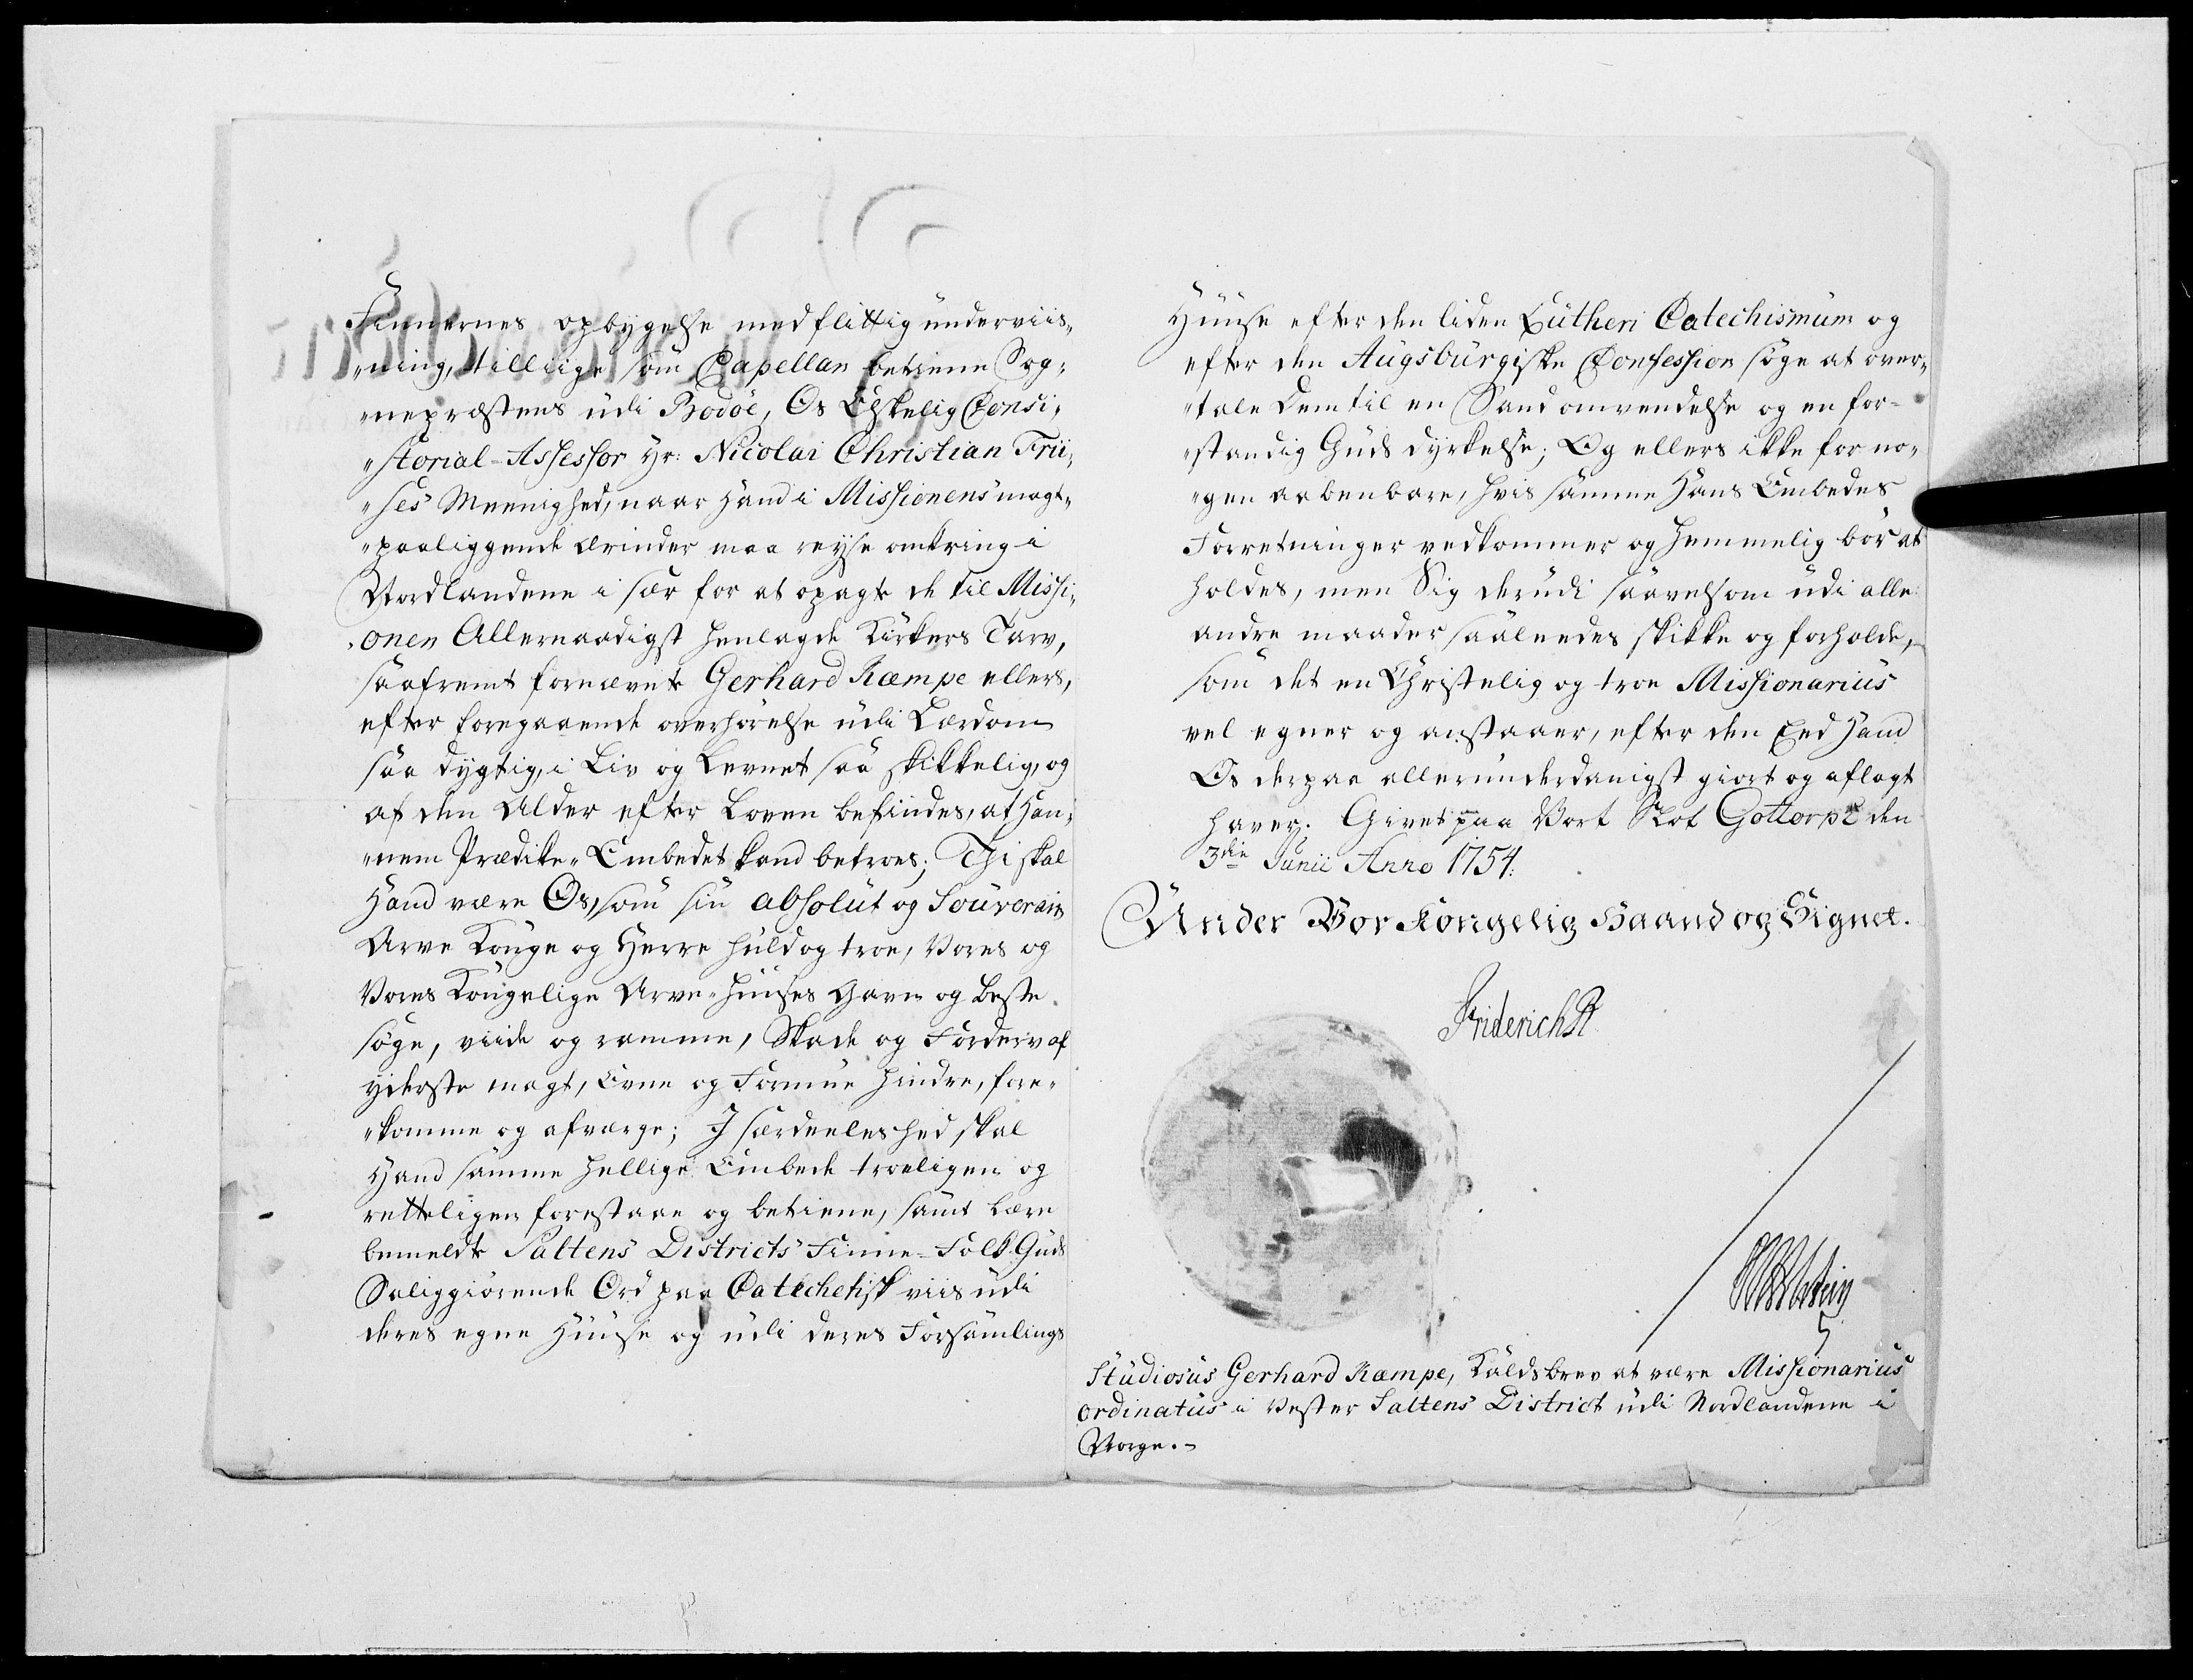 Finnernes opbygelse med flittig underviis„
„ning, tilliige som Capellan betiene Sog„
„nepræstens udi Bodöe, Os Elskelig Consi„
„storial-Assessor Hr: Nicolai Christian Frii„
„ses Meenighed, naar Hand i Missionens magt„
„paaliggende Ærinder maa reyse omkring i
Nordlandene i sær for at opagte de til Missi„
„onen Allernaadigst henlagde Kirkers Tarv,
saafremt fornævnte Gerhard Kæmpe ellers,
efter foregaaende overhörelse udi Lærdom
saa dygtig, i Liv og Levnet saa skikkelig, og
af den Alder efter Loven befindes, at Han„
„nem Prædike„Embedet kand betroes; Thi skal
Hand være Os, som sin absolut og Souverain
Arve Konge og Herre huld og troe, Vores og
Vores Kongelige Arve„Huuses Gavn og beste
söge, viide og ramme, Skade og Forderv af
yderste magt, Evne og Formue hindre, fore„
„komme og afværge; I særdeeleshed skal
Hand samme hellige Embede troeligen og
retteligen forestaae og betiene, samt lære
bemeldte Saltens Districts Finne-Folk Guds
Saliggiörende Ord paa Catechetisk viis udi
deres egne Huuse og udi deres Forsamlings
Huuse efter den liden Lutheri Catechismum og
efter den Augsburgiske Confession söge at over„
„tale dem til en Sand omvendelse og en for-
„standig Guds dyrkelse; Og ellers ikke for no„
„gen aabenbare, hvis samme Hans Embedes
Forretninger vedkommer og hemmelig bör at
holdes, men Sig derudi saavelsom udi alle
andre maader saaledes skikke og forholde,
som det en Christelig og troe Missionarius
vel egner og anstaaer, efter den Eed Hand
Os derpaa allerunderdanigst giort og aflagt
haver. Givet paa Vort Slot Gottorp den
3die Junii Anno 1754.
Under Vor Kongelig Haand og Signet.
Friderich R
Studiosus Gerhard Kæmpe, Kaldsbrev at være Missionarius
ordinatus i Vester Saltens District udi Nordlandene i
Norge.